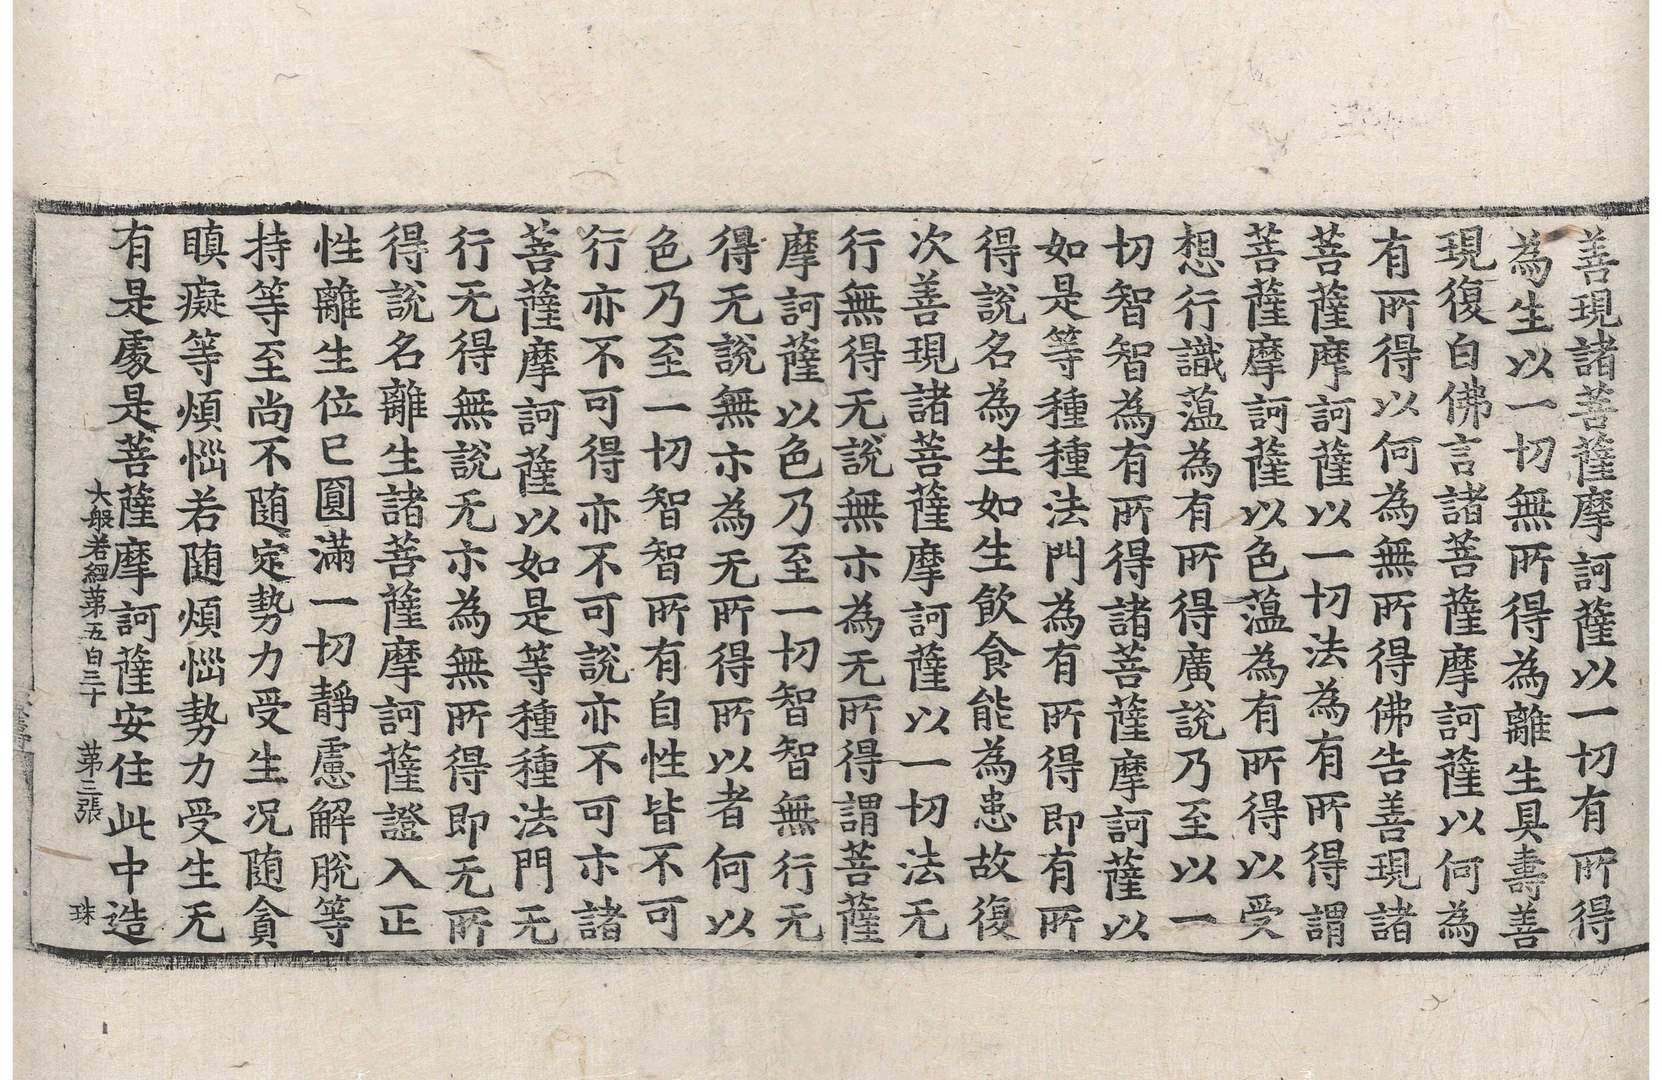 善現諸菩薩摩訶薩以一切有所得
為生以一切無所得為離生具壽善
現復白佛言諸菩薩摩訶薩以何為
有所得以何為無所得佛告善現諸
菩薩摩訶薩以一切法為有所得謂
菩薩摩訶薩以色蘊為有所得以受
想行識蘊為有所得廣說乃至以一
切智智為有所得諸菩薩摩訶薩以
如是等種種法門為有所得即有所
得說名為生如生飲食能為患故復
次善現諸菩薩摩訶薩以一切法无
行無得无說無亦為无所得謂菩薩
摩訶薩以色乃至一切智智無行无
得无說無亦為无所得所以者何以
色乃至一切智智所有自性皆不可
行亦不可得亦不可說亦不可亦諸
菩薩摩訶薩以如是等種種法門无
行无得無說无亦為無所得即无所
得說名離生諸菩薩摩訶薩證入正
性離生位已圓滿一切靜慮解脫等
持等至尚不随定勢力受生况随貪
瞋癡等煩惱若随煩惱勢力受生无
有是處是菩薩摩訶薩安住此中造
大般若經第五百三十 第三張 珠